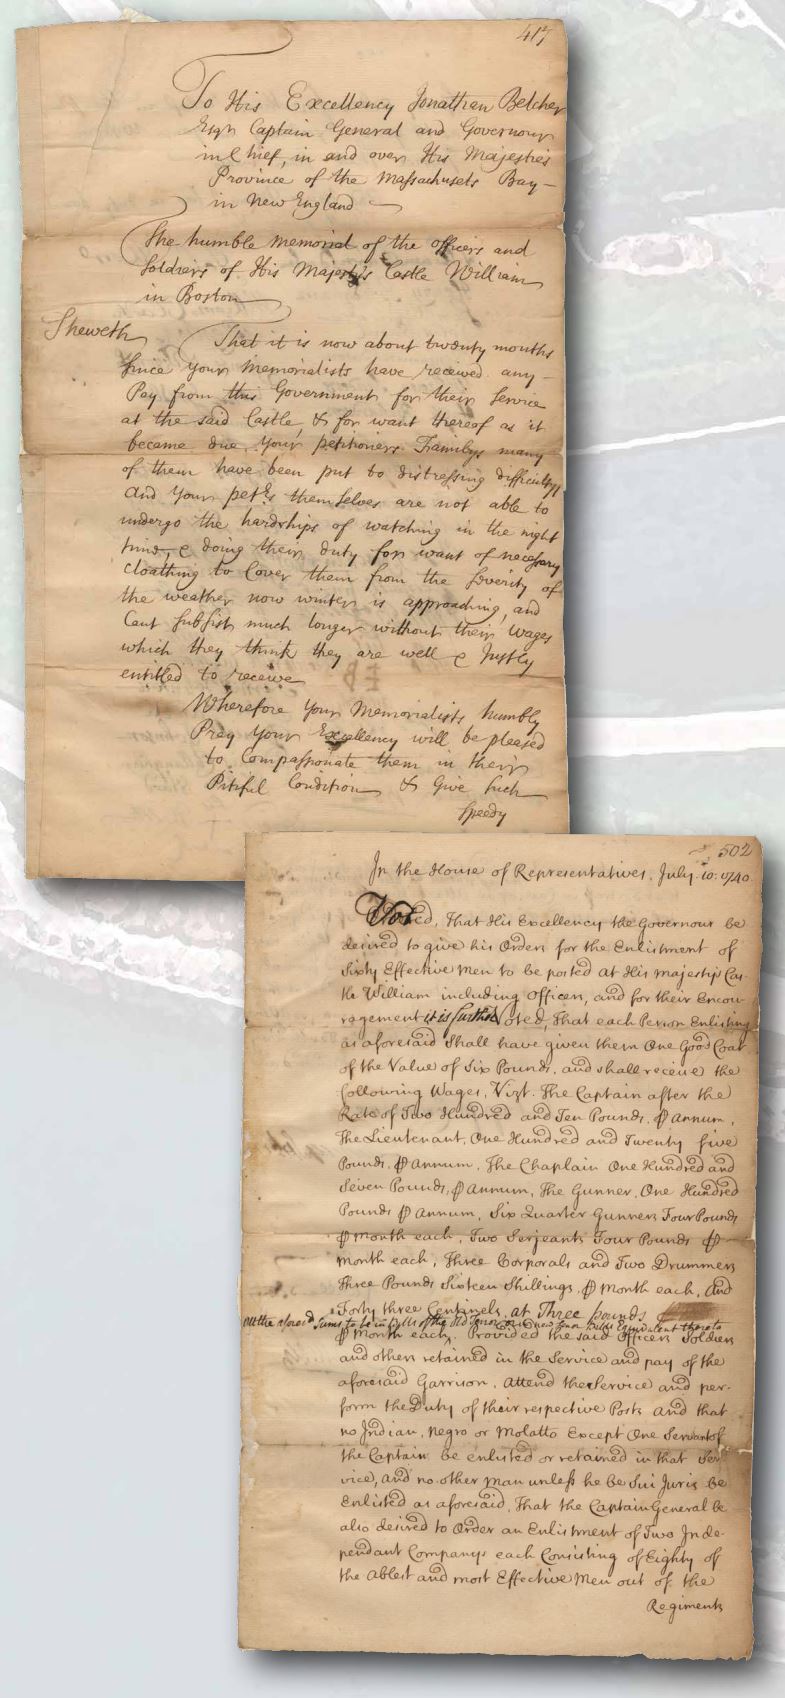 417
To His Excellency Jonathan Belcher
Esqr Captain General and Governour
in Chief, in and over His Majesties
Province of the Massachusets Bay -
in New England
The humble memorial of the officers and
Soldiers of His Majestys Castle William
in Boston
Sheweth
That it is now about twenty months
Since your memorialists have received any -
Pay from this Government for their Service
at the said Castle, & for want thereof as it
became due, your petitioners Familys many
of them have been put to distressing difficultys
and your petrs themselves are not able to
undergo the hardships of watching in the night
time, & doing their duty for want of necessary
cloathing to Cover them from the Severity of
the weather now winter is approaching, and
Cant subsist much longer without their wages
which they think they are well & Justly
entitled to receive
Wherefore your Memorialists humbly
Pray your Excellency will be pleased
to Compassionate them in their
Pitiful Condition & Give such
Speedy
502
In the House of Representatives, July 10. 1740
Voted, That His Excellency the Governour be
desired to give his Orders for the Enlistment of
Sixty Effective Men to be posted at His majestys Cas-
tle William including Officers, and for their Encou-
ragement it is further Voted, That each Person Enlisting
as aforesaid Shall have given them One Good Coat
of the Value of Six Pounds, and shall receive the
following Wages, Vizt. The Captain after the
Rate of Two Hundred and Ten Pounds, ⅌ annum,
The Lieutenant, One Hundred and Twenty five
Pounds, ⅌ annum, The Chaplain One Hundred and
Seven Pounds, ⅌ annum, The Gunner, One Hundred
Pounds ⅌ annum, Six Quarter Gunners Four Pounds
⅌ month each, Two Serjeants Four Pounds ⅌
month each, Three Corporals and Two Drummers
Three Pounds Sixteen Shillings, ⅌ month each, And
Forty three Centinels, at Three pounds
all the aforesd Sums to be in bills of the old Tenor or in new Tenor bills Equivalent thereto
⅌ Month each, Provided the said Officers Soldiers
and others retained in the Service and pay of the
aforesaid Garrison, attend the Service and per-
form the Duty of their respective Posts and that
no Indian, negro or Molatto Except One Servant of
the Captain be enlisted or retained in that Ser-
vice, and no other man unless he be Sui Juris be
Enlisted as aforesaid, That the Captain General be
also desired to Order an Enlistment of Two Inde-
pendant Companys each Consisting of Eighty of
the ablest and most Effective Men out of the
Regiments